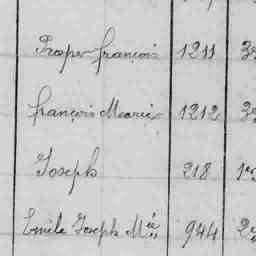 Prosper françois 1211 3e
françois Mearie 1212 3e
Joseph 218 1er
Emile Joseph Mie 944 2e